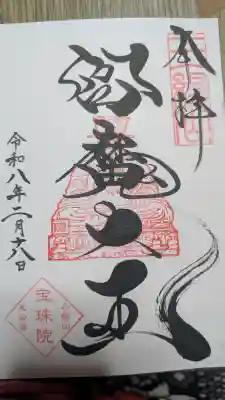 奉拝
閻魔大王
令和八年二月十六日
宝珠院